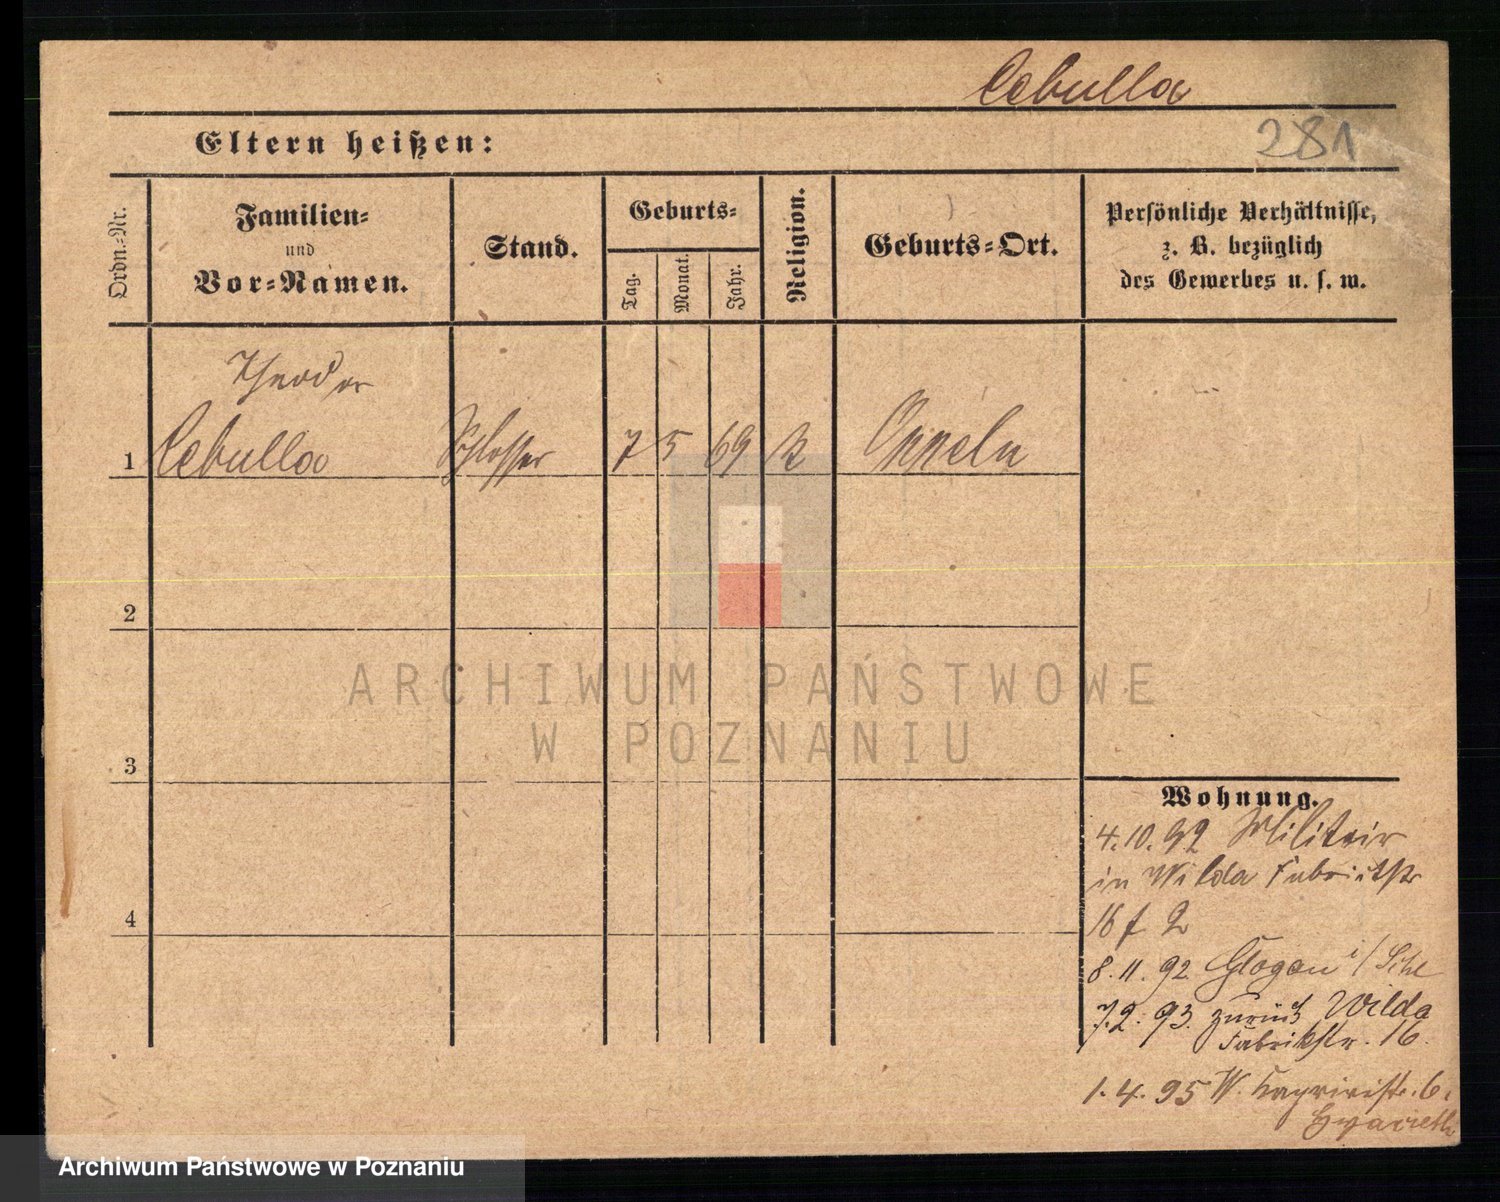 Cebulla
281
Eltern heißen:
Ordn.-Nr.
Familien-
und
Vor-Namen.
Stand.
Geburts-
Tag.
Monat.
Jahr.
Religion.
Geburts-Ort.
Persönliche Verhältnisse,
z. B. bezüglich
des Gewerbes u. s. w.
Theodor
1 Cebulla Schlosser 7 5 69 k Oppeln
2
3
4
ARCHIWUM PAŃSTWOWE
W POZNANIU
Wohnung.
4.10.92 Militair
in Wilda Fabrikstr
16 f 2
8.11.92 Glogau i/Schl
7.2.93. zurück Wilda
Fabrikstr. 16.
1.4.95 W. Kaprivistr. 6.
Archiwum Państwowe w Poznaniu